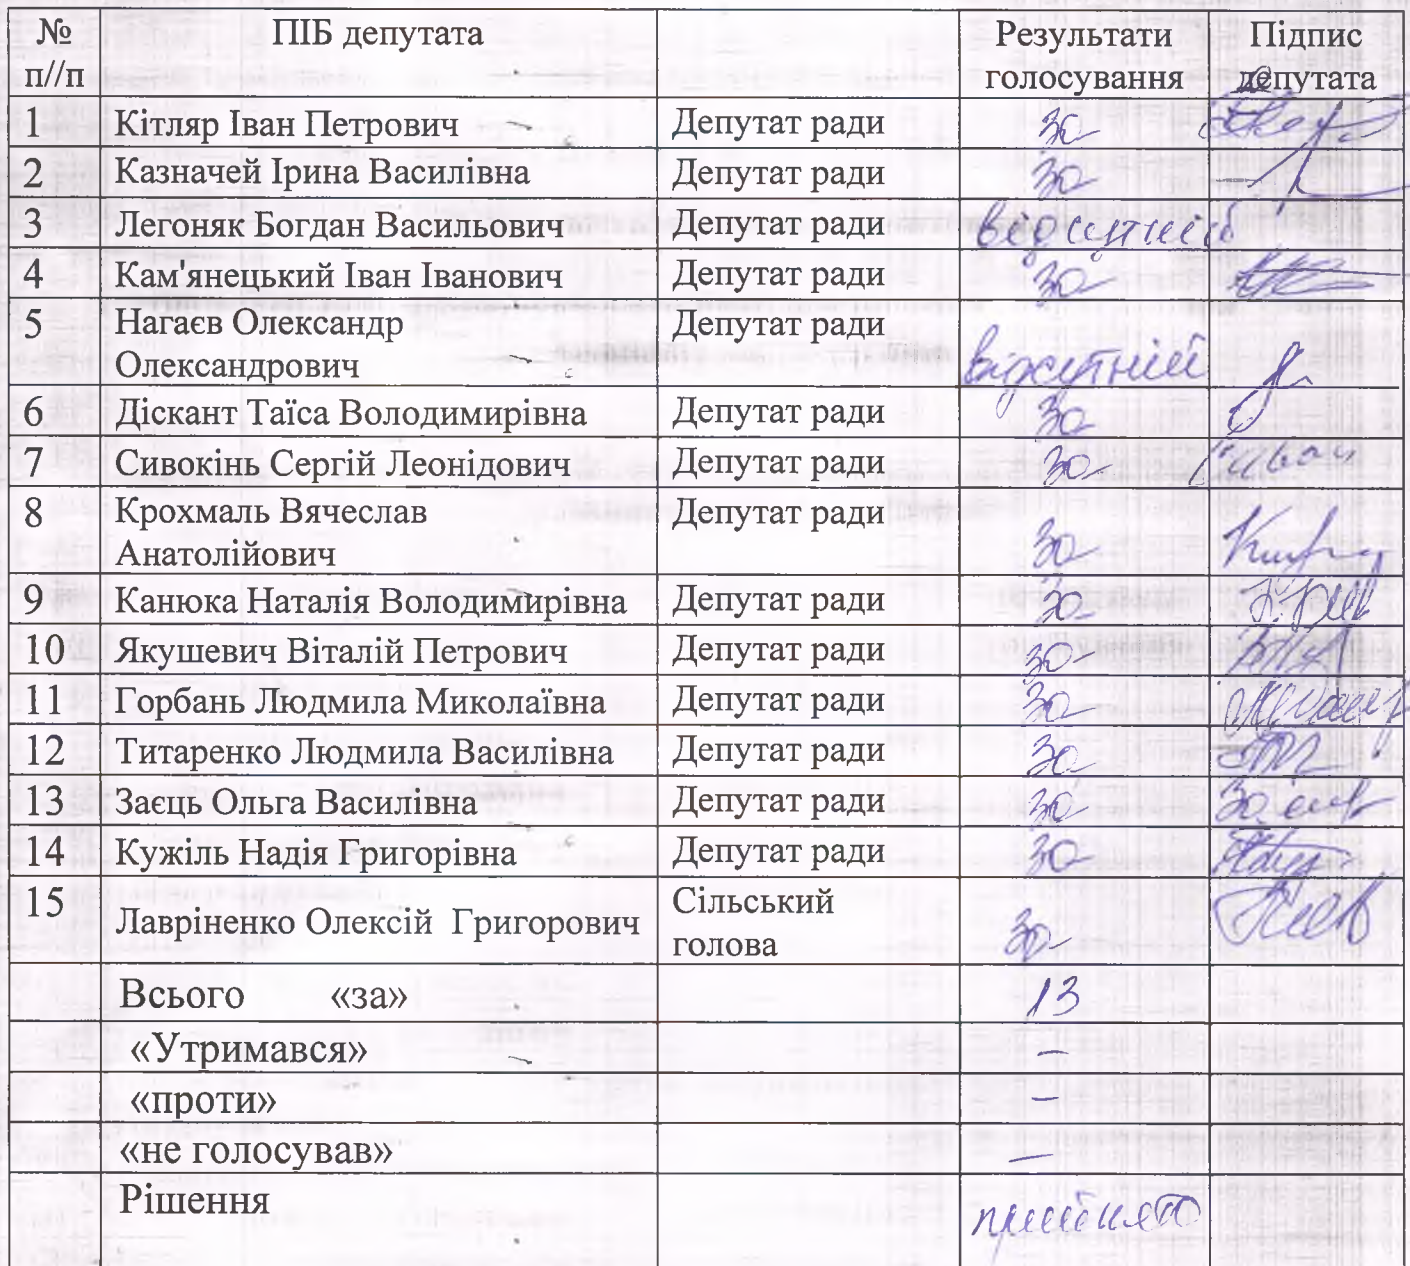 № п//п ПІБ депутата Результати голосування Підпис депутата
1 Кітляр Іван Петрович Депутат ради за
2 Казначей Ірина Василівна Депутат ради за
3 Легоняк Богдан Васильович Депутат ради відсутній
4 Кам'янецький Іван Іванович Депутат ради за
5 Нагаєв Олександр Депутат ради
Олександрович відсутній
6 Діскант Таїса Володимирівна Депутат ради за
7 Сивокінь Сергій Леонідович Депутат ради за
8 Крохмаль Вячеслав Депутат ради
Анатолійович за
9 Канюка Наталія Володимирівна Депутат ради за
10 Якушевич Віталій Петрович Депутат ради за
11 Горбань Людмила Миколаївна Депутат ради за
12 Титаренко Людмила Василівна Депутат ради за
13 Заєць Ольга Василівна Депутат ради за
14 Кужіль Надія Григорівна Депутат ради за
15 Лавріненко Олексій Григорович Сільський голова за
Всього «за» 13
«Утримався» –
«проти» –
«не голосував» –
Рішення прийнято